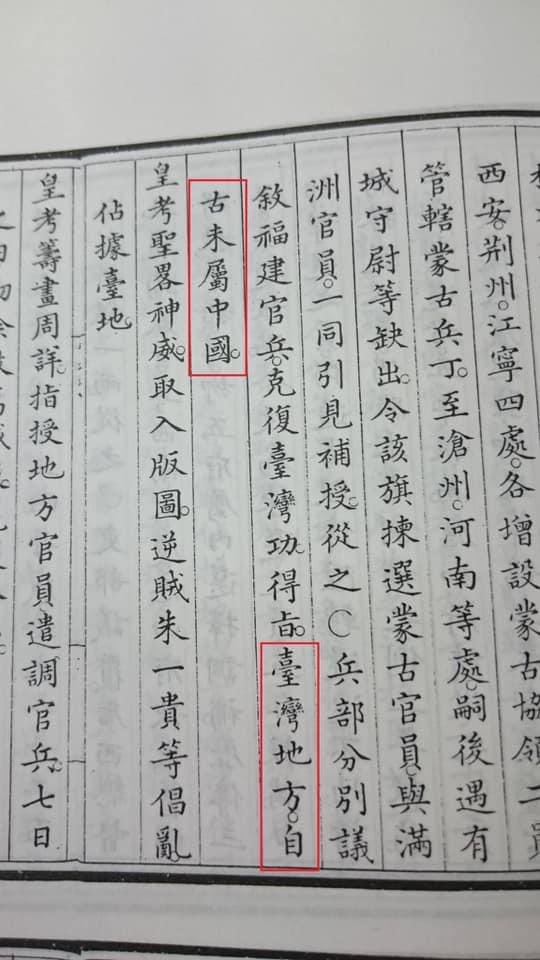 西安。荆州。江寧四處。各增設蒙古協領二員
管轄蒙古兵丁。至滄州。河南等處。嗣後遇有
城守尉等缺出。令該旗揀選蒙古官員。與滿
洲官員。一同引見補授。從之○兵部分別議
敘福建官兵。克復臺灣功。得旨。臺灣地方。自
古未屬中國。
皇考聖畧神威。取入版圖。逆賊朱一貴等倡亂
佔據臺地。
皇考籌畫周詳。指授地方官員遣調官兵。七日